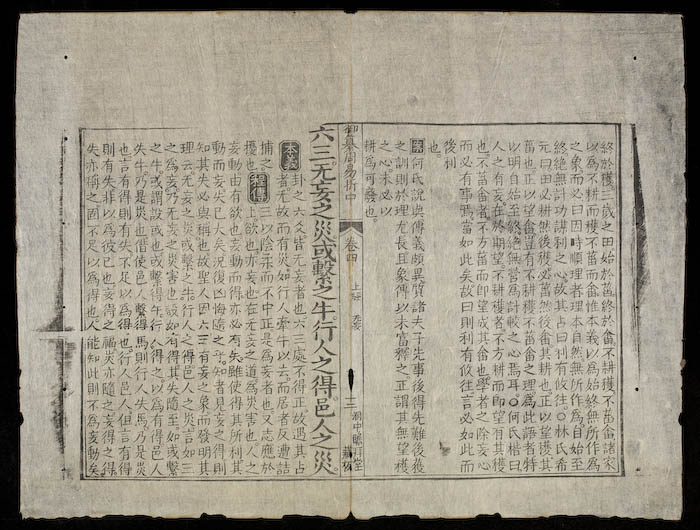 終於穫三歲之田始於菑終於畬不耕穫不菑畬諸家
以為不耕而穫不菑而畬惟本義以為始終無所作為
之象而必曰因時順理者理本自然無所作為自始至
終絕無計功謀利之心故其占曰利有攸往○林氏希
元曰田必耕然後穫必菑然後畬其耕也正以望穫其
菑也正以望畬豈有不耕穫不菑畬之理為此語者特
以明自始至終絕無營為計較之心焉耳○何氏楷曰
人之有妄在於期望不耕穫者不方耕而即望有其穫
也不菑畬者不方菑而即望成其畬也學者之除妄心
而必有事焉當如此矣故曰則利有攸往言必如此而
後利
也。
案何氏說與傳義頗異質諸夫子先事後得先難後穫
之訓則於理尤長且象傳以未富釋之正謂其無望穫
之心未必以
耕為可廢也。
御纂周易折中 卷四 上經 无妄 三
六三无妄之災或繫之牛行人之得邑人之災
本義卦之六爻皆无妄者也六三處不得正故遇其占
者无故而有災如行人牽牛以去而居者反遭詰
捕之
擾也程傳三以陰柔而不中正是為妄者也又志應於
上欲也亦妄也在无妄之道為災害也人之
妄動由有欲也妄動而得亦必有失雖使得其所利其
動而妄失已大矣況復凶悔隨之乎知者見妄之得則
知其失必與稱也故聖人因六三有妄之象而發明其
理云无妄之災或繫之牛行人之得邑人之災言如三
之為妄乃无妄之災害也設如有得其失隨至如或繫
之牛或謂設或也或繫得牛行人得之以為有得邑人
失牛乃是災也借使邑人繫得馬則行人失馬乃是災
也言有得則有失不足以為得也行人邑人但言有得
則有失非以為彼已也妄得之福災亦隨之妄得之得
失亦稱之固不足以為得也人能知此則不為妄動矣